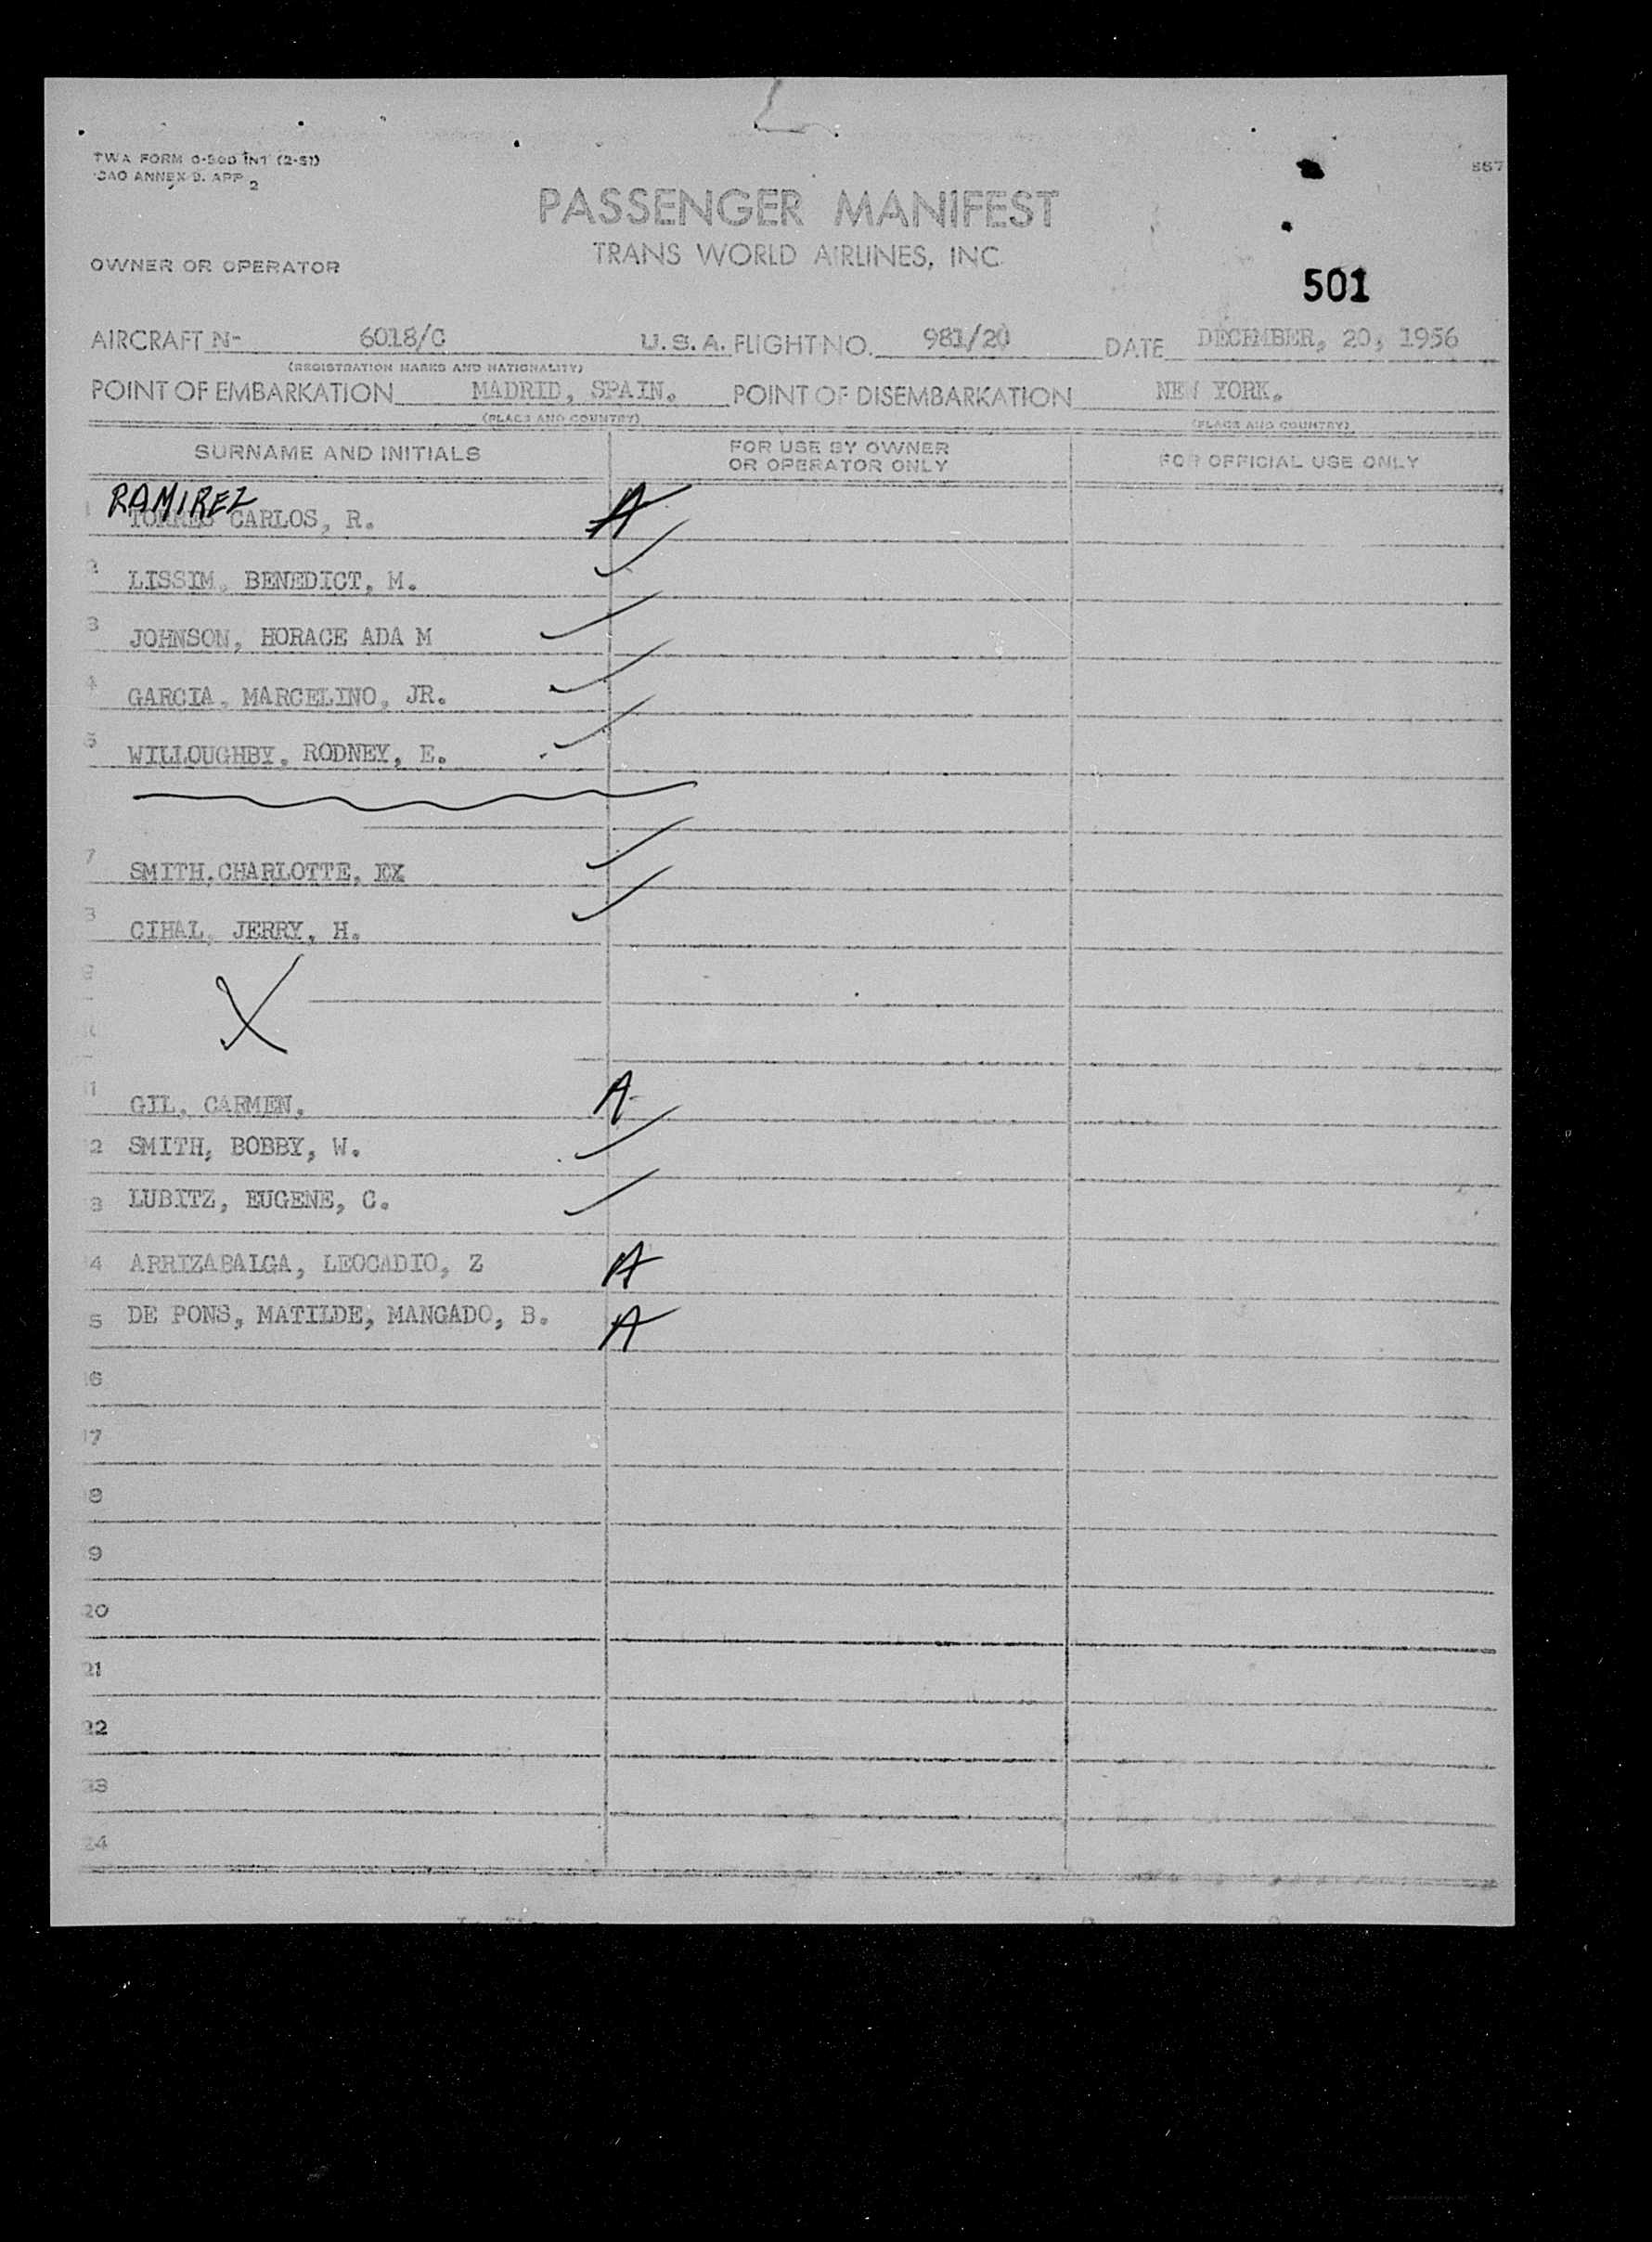 TWA FORM O-500 INT (2-51)
CAO ANNEX 9. APP 2
557
PASSENGER MANIFEST
TRANS WORLD AIRLINES, INC
OWNER OR OPERATOR
501
AIRCRAFT N- 6018/C U.S.A. FLIGHT NO. 981/20 DATE DECEMBER, 20, 1956
(REGISTRATION MARKS AND NATIONALITY)
POINT OF EMBARKATION MADRID, SPAIN. POINT OF DISEMBARKATION NEW YORK.
(PLACE AND COUNTRY) (PLACE AND COUNTRY)
SURNAME AND INITIALS FOR USE BY OWNER OR OPERATOR ONLY FOR OFFICIAL USE ONLY
RAMIREZ
1 TORRES CARLOS, R. A
2 LISSIM, BENEDICT, M.
3 JOHNSON, HORACE ADA M
4 GARCIA, MARCELINO, JR.
5 WILLOUGHBY, RODNEY, E.
7 SMITH, CHARLOTTE, EX
8 CIHAL, JERRY, H.
9
X
1 GIL, CARMEN. A
2 SMITH, BOBBY, W.
3 LUBITZ, EUGENE, C.
14 ARRIZABALGA, LEOCADIO, Z A
5 DE PONS, MATILDE, MANGADO, B. A
16
17
18
9
20
21
22
23
24